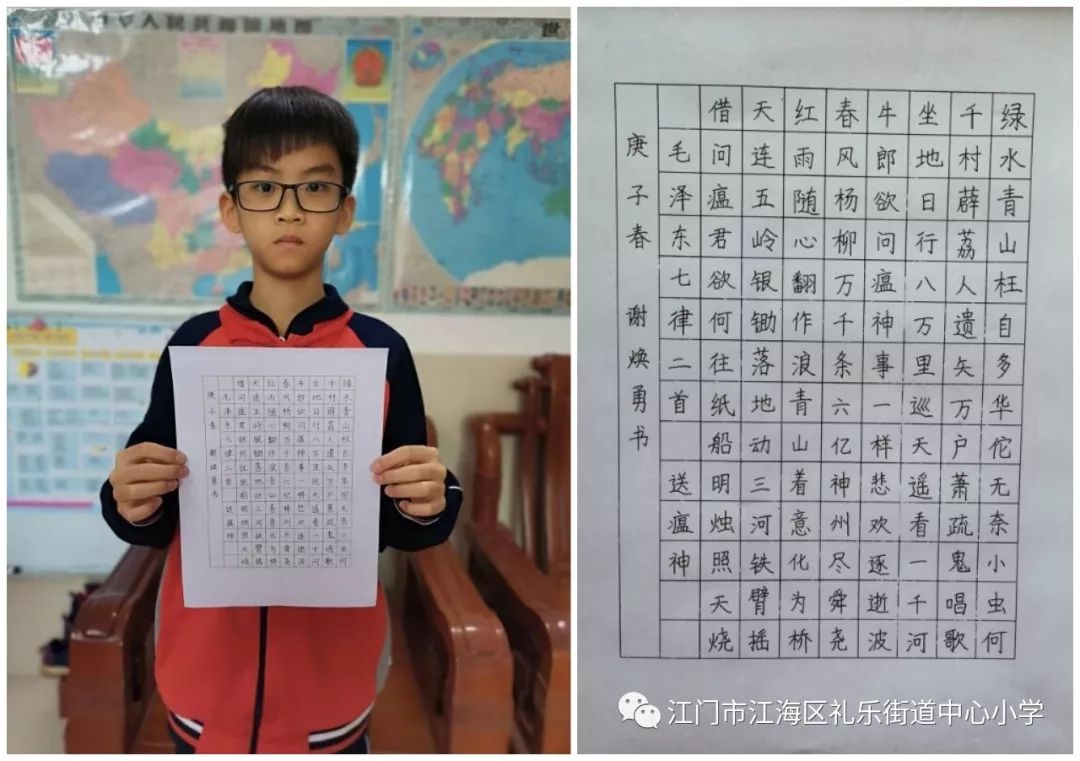 世
绿水青山枉自多华佗无奈小虫何
千村薜荔人遗矢万户萧疏鬼唱歌
坐地日行八万里巡天遥看一千河
牛郎欲问瘟神事一样悲欢逐逝波
春风杨柳万千条六亿神州尽舜尧
红雨随心翻作浪青山着意化为桥
天连五岭银锄落地动三河铁臂摇
借问瘟君欲何往纸船明烛照天烧
毛泽东七律二首 送瘟神
庚子春 谢焕勇书
江门市江海区礼乐街道中心小学